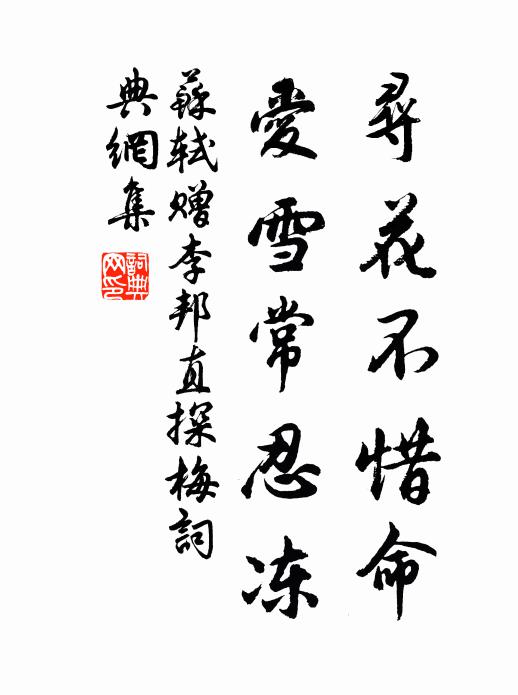 尋花不惜命
愛雪常忍冻
蘇軾赠李邦直探梅詞
典網集
詞典
网印